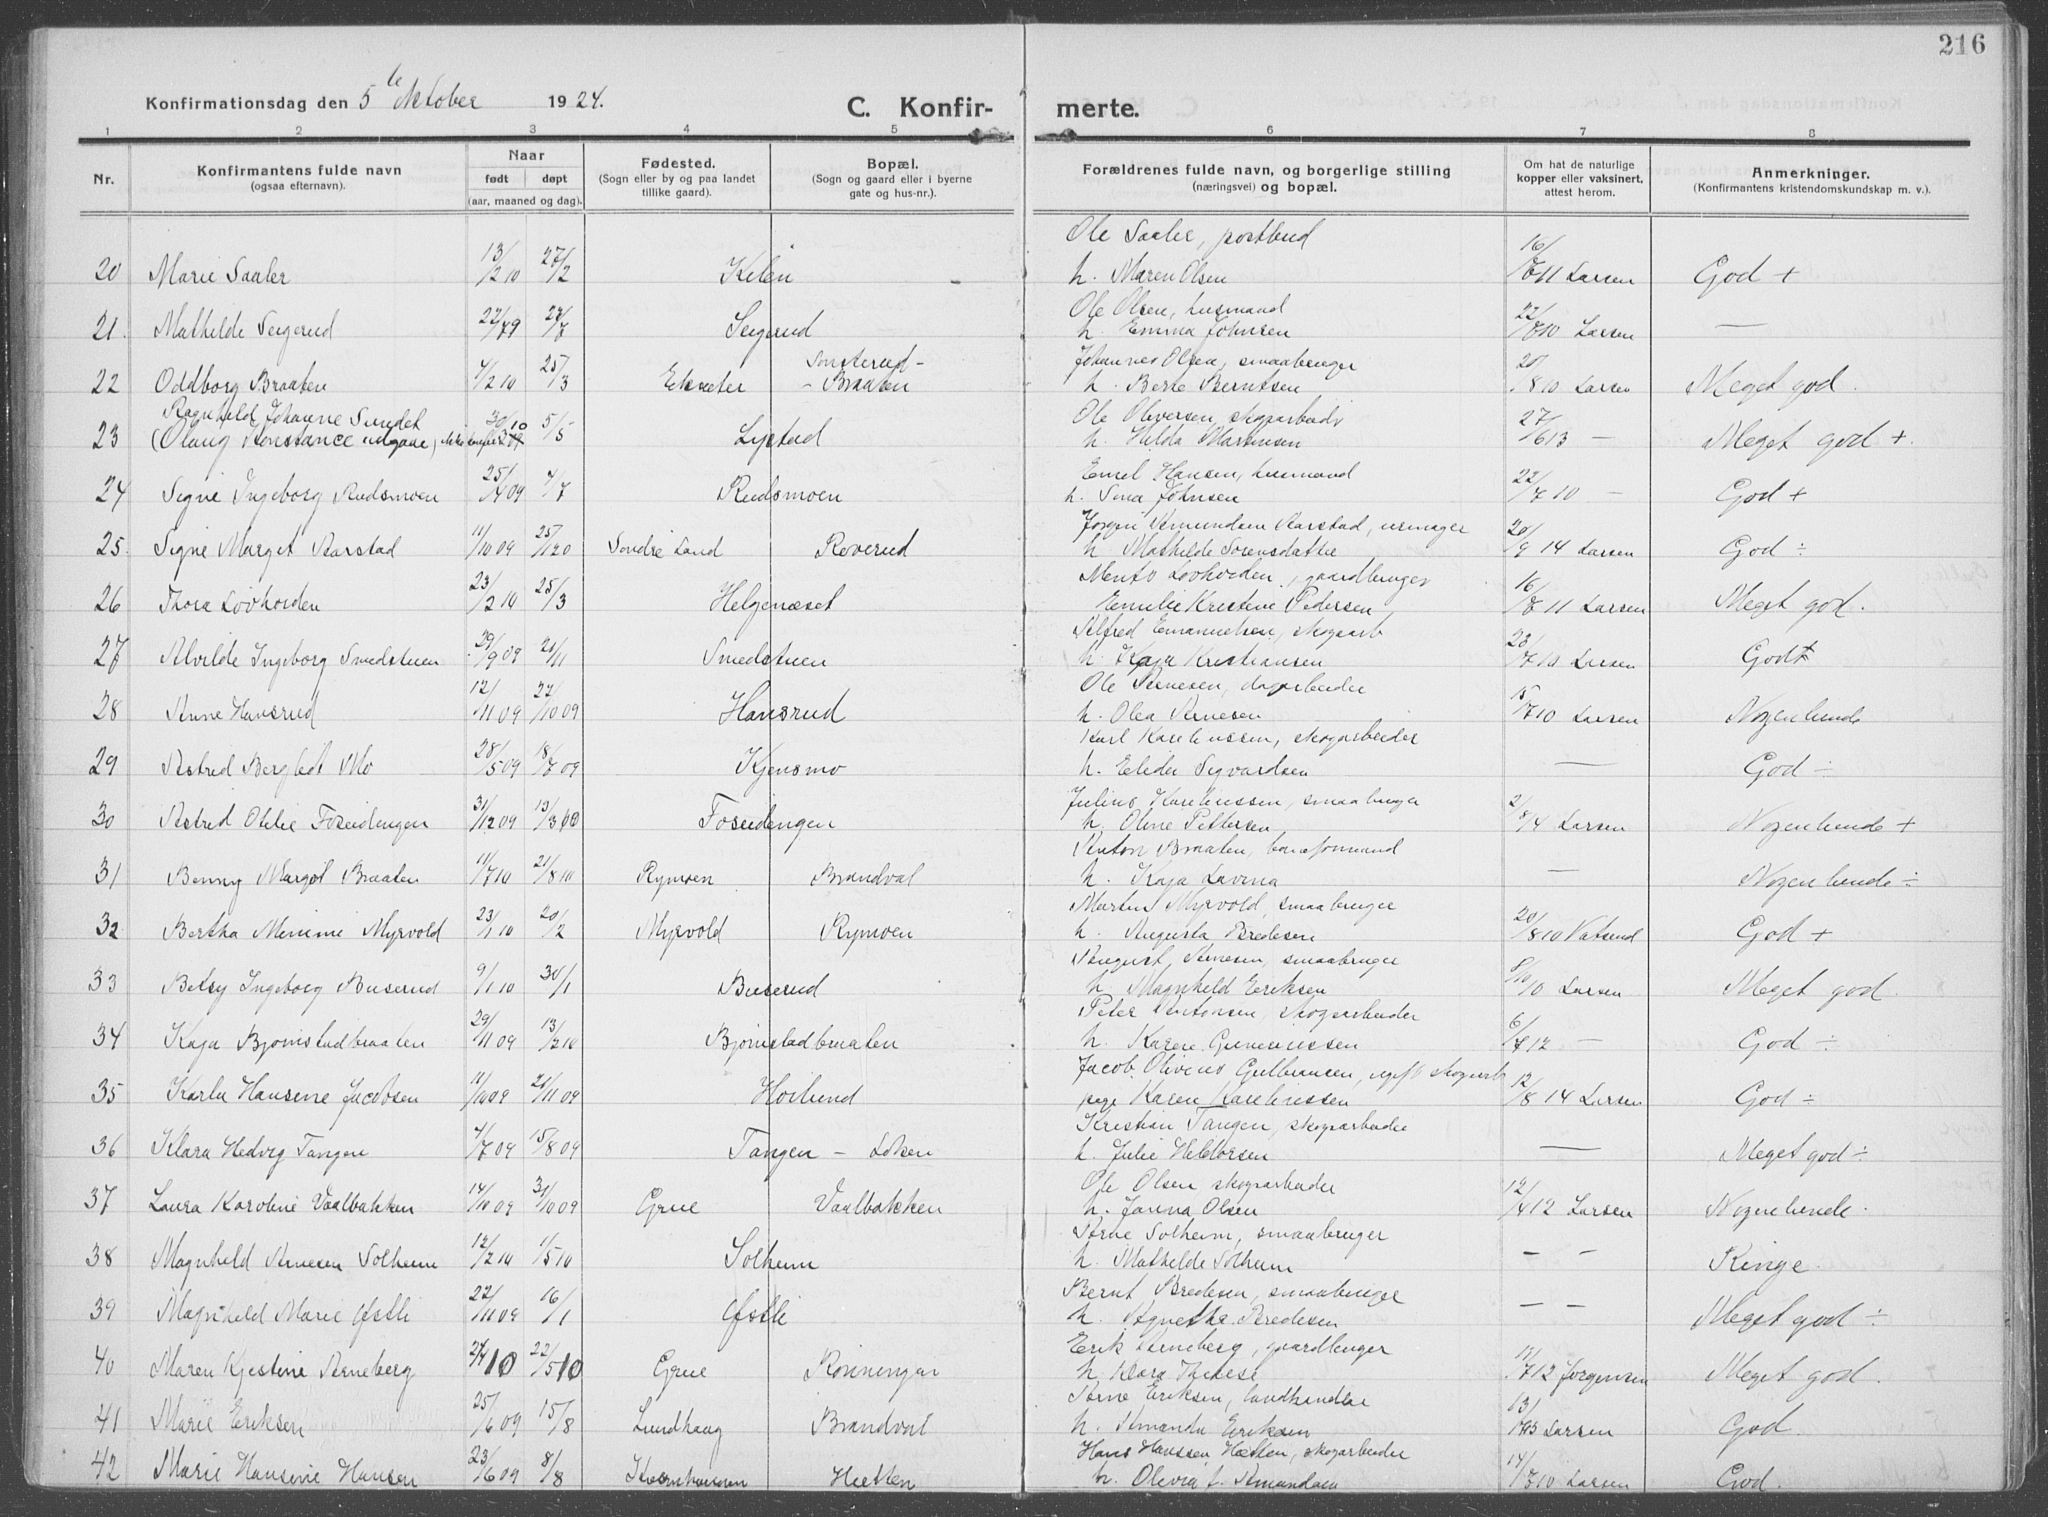 216
Konfirmationsdag den 5te Oktober 1924.
C. Konfirmerte.
1 2 3 4 5 6 7 8
Nr.
Konfirmantens fulde navn
(ogsaa efternavn).
Naar
født døpt
(aar, maaned og dag).
Fødested.
(Sogn eller by og paa landet
tillike gaard).
Bopæl.
(Sogn og gaard eller i byerne
gate og hus-nr.).
Forældrenes fulde navn, og borgerlige stilling
(næringsvei) og bopæl.
Om hat de naturlige
kopper eller vaksinert,
attest herom.
Anmerkninger.
(Konfirmantens kristendomskundskap m. v.).
Ole Saaler, postbud
20 Marie Saaler 13/2 10 27/2 Kilen h. Maren Olsen 16/8 11 Larsen God +
Ole Olsen, husmand
21. Mathilde Seigerud 22/7 9 Seigerud h. Emma Johnsen 22/7 10 Larsen —
Johannes Olsen, smaabruger
22 Oddborg Braaten 4/2 10 25/3 Sonsterud-Braaten h. Berte Berntsen 20/8 10 Larsen Meget god.
Ragnhild Johanne Sundet Ole Oliversen, skogarbeid
23 (Olaug Konstance udgaar) 5/5 Lystad h. Hilda Martinsen 27/6 13 — Meget god +
Emil Hansen, husmand
24 Signe Ingeborg Rudsmoen 25/4 09 4/7 Rudsmoen h. Sina Johnsen 22/7 10 — God +
Jørgen Amundsen Aarstad, urmager
25. Signe Marget Aarstad 11/10 09 25/12 0 Søndre Land Roverud h. Mathilde Sorensdatter 20/9 14 Larsen God ÷
Løvhorden, gaardbruger
26 Thora Lövhorden 23/2 10 25/3 Helgenæset Emilie Kristine Pedersen 16/8 11 Larsen Meget god.
Alfred Emanuelsen, skogarb
27 Alvilde Ingeborg Smedstuen 29/9 09 21/11 Smedstuen h. Kaja Kristiansen 23/7 10 Larsen God +
Ole Arnesen, dagarbeider
28 Anne Hansrud 12/11 09 Hansrud h. Olea Arnesen 15/7 10 Larsen Nogenlunde
Karl Kareliussen, skogarbeider
29 Astrid Bergljot Mo 28/5 09 18/7 09 Kjensmo h. Elida Sigvardsen — God ÷
Julius Kareliussen, smaabruger
30 Astrid Otilie Foseidengen 31/12 09 13/3 10 Foseidengen h. Oline Pettersen 2/8 14 Larsen Nogenlunde +
Anton Braaten, baneformand
31 Benny Margot Braaten 11/7 10 21/8 10 Rymoen Brandval h. Kaja Lavina — Nogenlunde ÷
Martin Myrvold, smaabruger
32 Bertha Minime Myrvold 23/1 10 20/2 Myrvold Rymoen h. Augusta Bredesen 20/8 10 Vatsend God +
August Arnesen, smaabruger
33 Betsy Ingeborg Buserud 9/1 10 30/1 Buserud h. Magnhild Eriksen 10 Larsen Meget god.
Peter Antonsen, skogarbeider
34 Kaja Bjørnstadbraaten 29/11 09 13/2 10 Bjørnstadbraaten h. Karen Gunerius­sen 6/7 12 — God ÷
Jacob Olivius Gulbransen, ugift skogarb
35 Karla Hansine Jacobsen 11/10 09 21/11 09 Hoilund pige Karen Kareliussen 12/8 14 Larsen God ÷
Kristian Tangen, skogarbeider
36 Klara Hedvig Tangen 4/7 09 15/8 09 Tangen – Løken h. Julie Heldorsen — Meget god ÷
Ole Olsen, skogarbeider
37 Laura Karoline Vaalbakken 14/10 09 31/10 09 Grue Vaalbakken h. Janna Olsen 12/4 12 Larsen Nogenlunde.
Arne Solheim, smaabruger
38 Magnhild Arnesen Solheim 12/2 10 1/5 10 Solheim h. Mathilde Solheim — — Ringe.
Bernt Bredesen, smaabruger
39 Magnhild Marie Østli 22/11 09 16/1 Østli h. Agnethe Bredesen — — Meget god ÷
Erik Arneberg, gaardbruger
40 Maren Kjestine Arneberg 24/4 10 22/5 10 Grue Rönningen h. Klara Therese 7 12 Jørgensen Meget god.
Arne Eriksen, landhandler
41 Marie Eriksen 25/6 09 15/8 Lundhaug Brandval h. Amanda Eriksen 13/ Larsen God.
Hans Hanssen Hætten, skogarbeider
42 Marie Hansine Hansen 23/6 09 8/8 Hætten h. Olevia f. Amandasen 14/7 10 Larsen God.